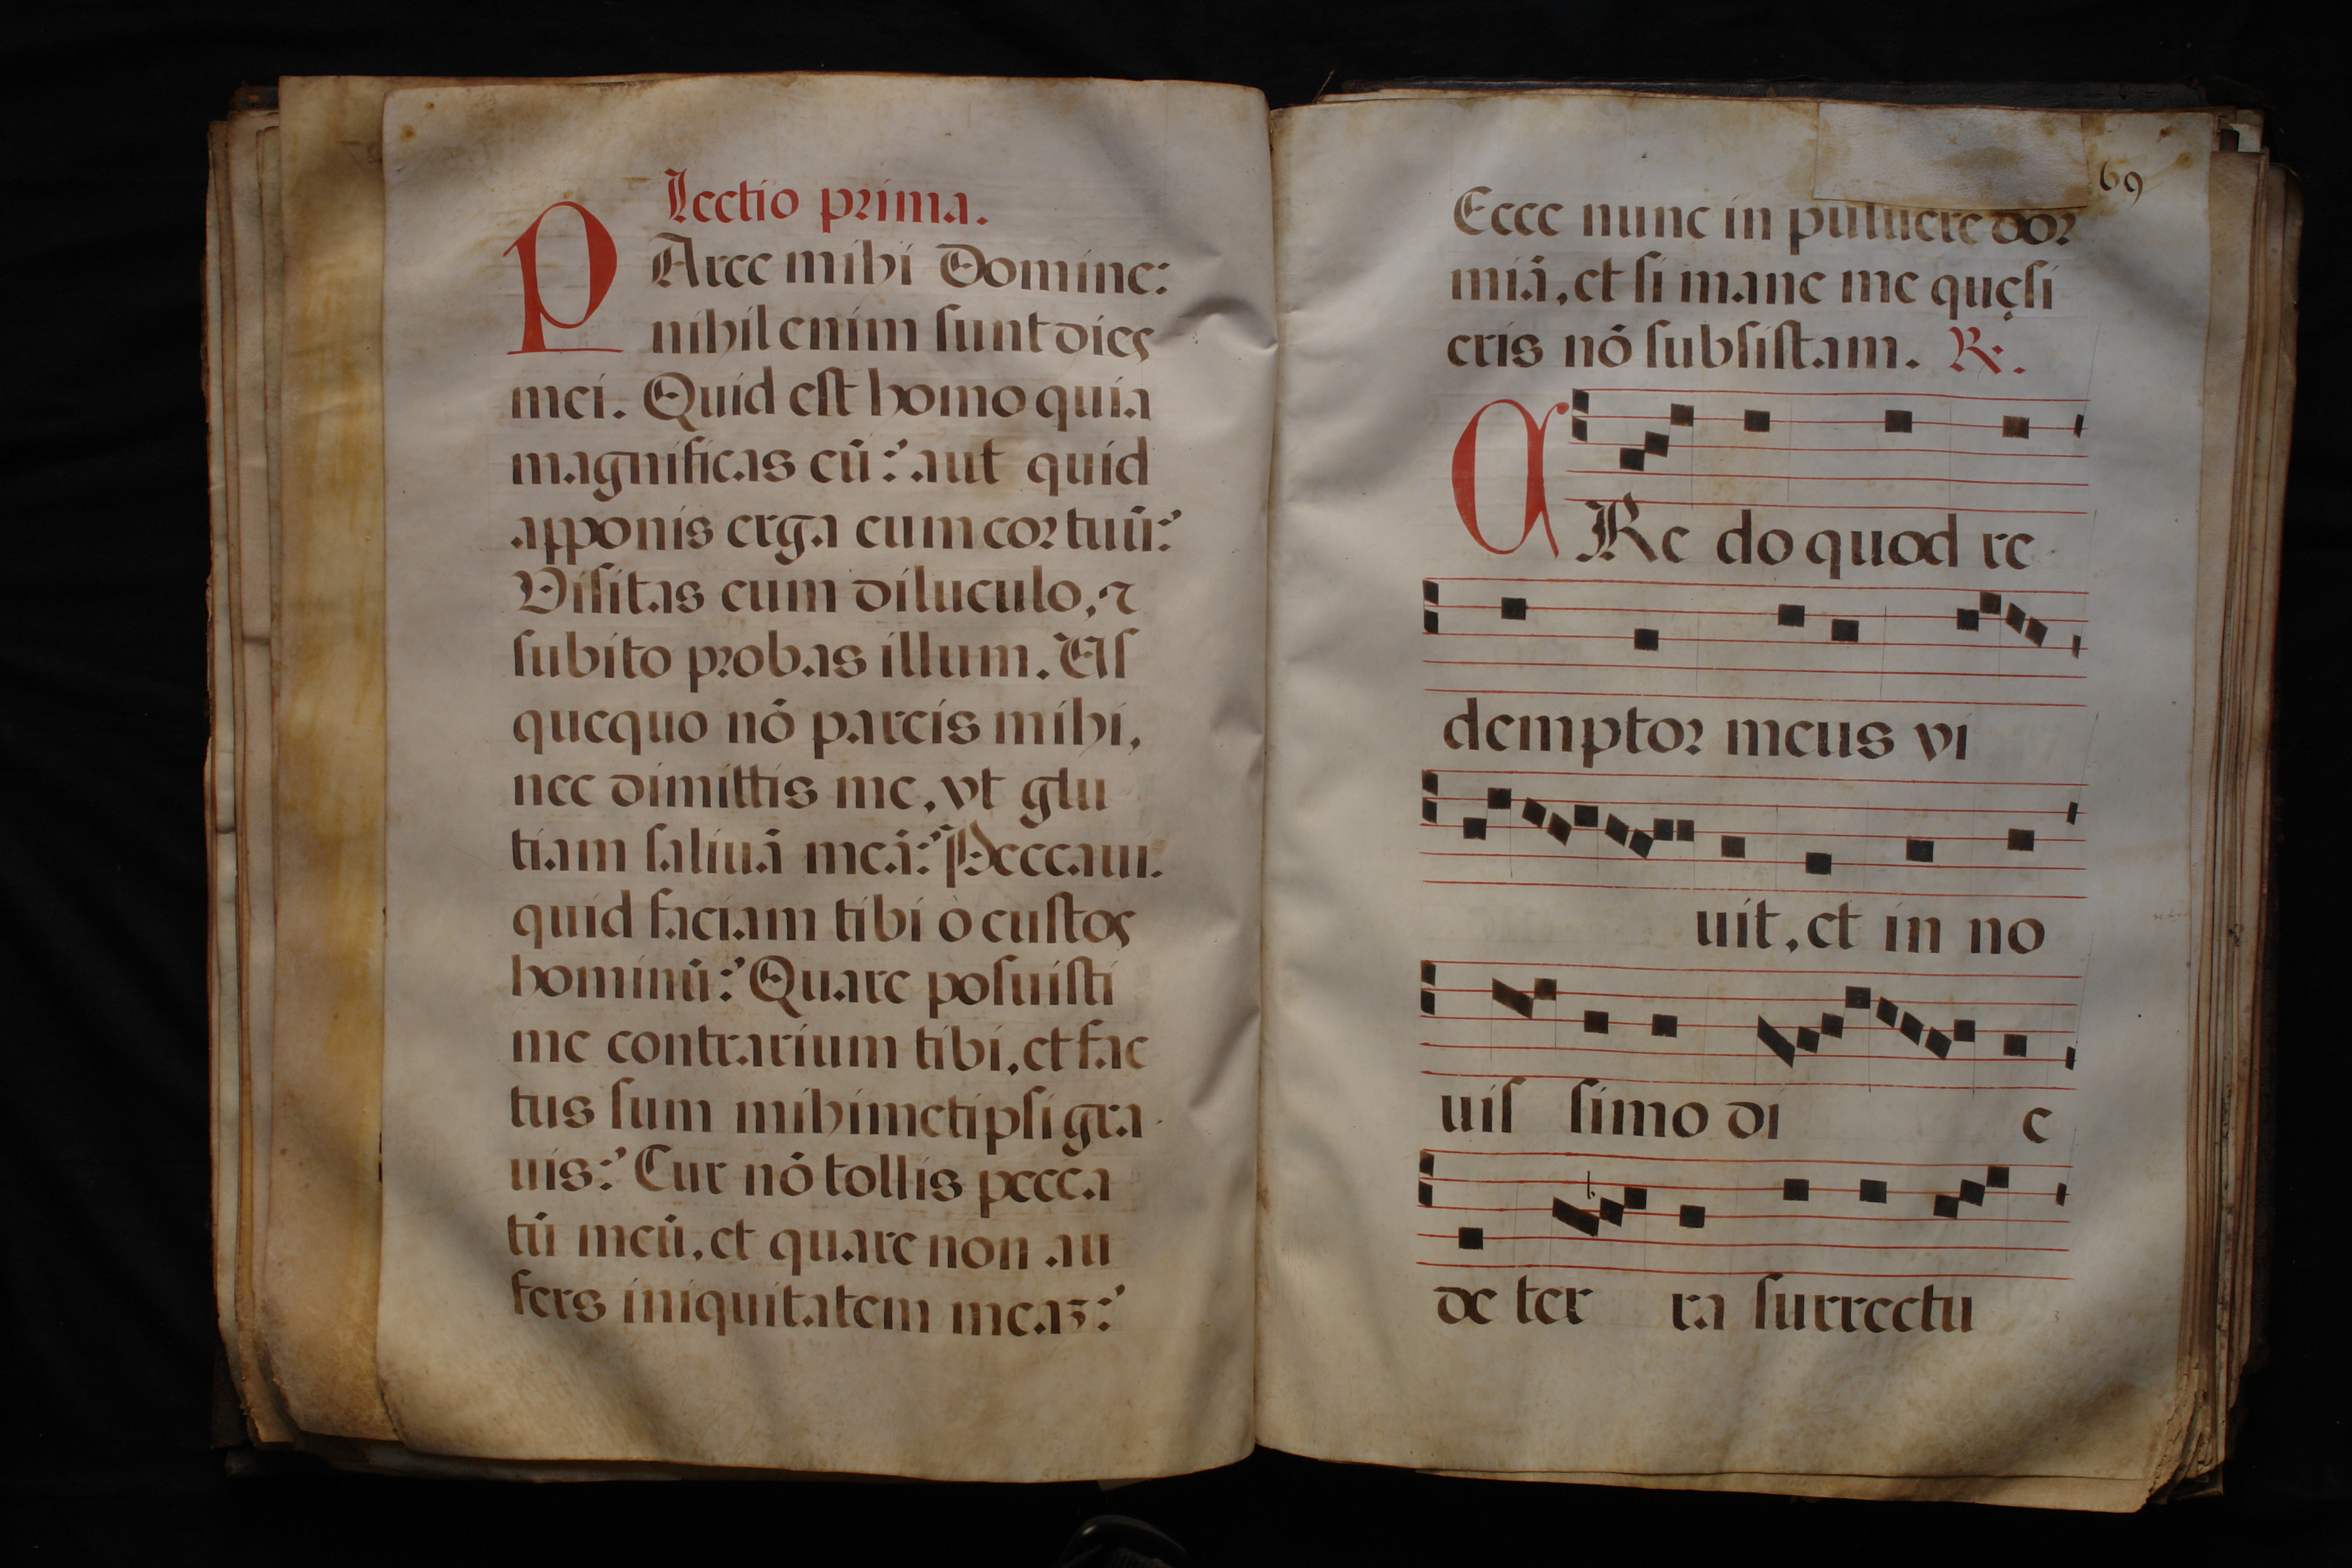 Lectio prima.
PArce mihi Domine:
nihil enim sunt dies
mei. Quid est homo quia
magnificas eū? aut quid
apponis erga eum cor tuū?
Visitas eum diluculo, ⁊
subito probas illum. Vs
quequo nō parcis mihi,
nec dimittis me, vt glu
tiam saliuā meā? Peccaui.
quid faciam tibi ò custos
hominū? Quare posuisti
me contrarium tibi, et fac
tus sum mihimetipsi gra
uis? Cur nō tollis pecca
tū meū, et quare non au
fers iniquitatem meaʒ?
69
Ecce nunc in puluere dor
miā, et si mane me quęsi
eris nō subsistam. ℟.
CRe do quod re
demptor meus vi
uit, et in no
uis simo di e
de ter ra surrectu